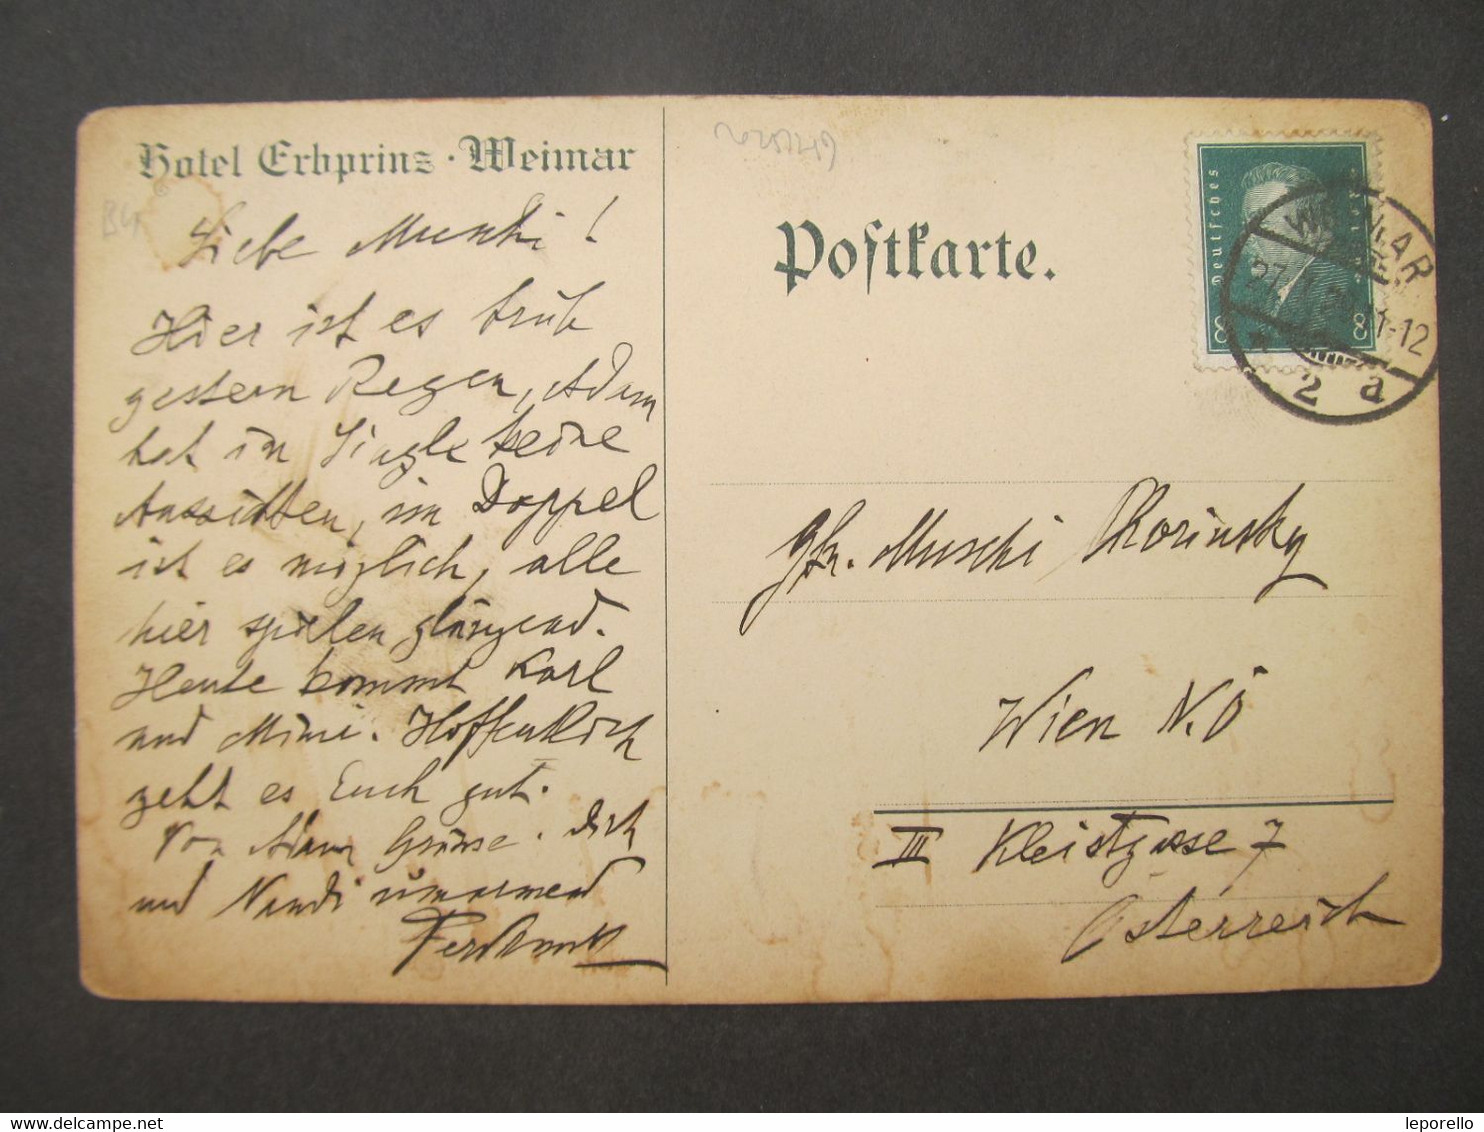 Hotel Erbprinz · Weimar
Liebe Muschi!
Hier ist es trüb
gestern Regen, Adam
hat im Single keine
Aussichten, im Doppel
ist es möglich, alle
hier spielen glänzend.
Heute kommt Karl
und Mimi. Hoffentlich
geht es Euch gut.
Von Adam Grüsse. Dich
und Nandi umarmend
Ferdinand
Postkarte.
Deutsches
8
8
WEIMAR
27.
11-12
2 a
Gfn. Muschi Chorinsky
Wien N.Ö
III Kleistgasse 7
Österreich
B4
leporello